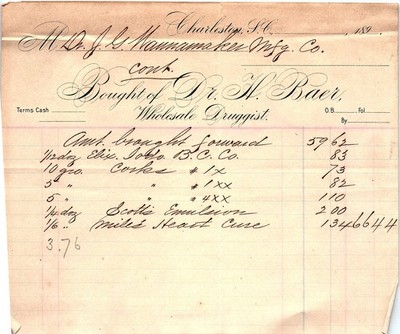 Charleston, S.C. 189
M Dr. J. G. Wannamaker Mfg. Co.
cont.
Bought of Dr. H. Baer,
Terms Cash Wholesale Druggist. O.B. Fol.
By
Amt. brought forward 59 62
1/2 doz Elix. B. C. Co. 83
10 gro. Corks # 1x 73
5 " " # 1xx 82
5 " " # 4xx 1 10
Scott's Emulsion 2 00
1/6 " Miles Heart Cure 1 34 66 44
3.76